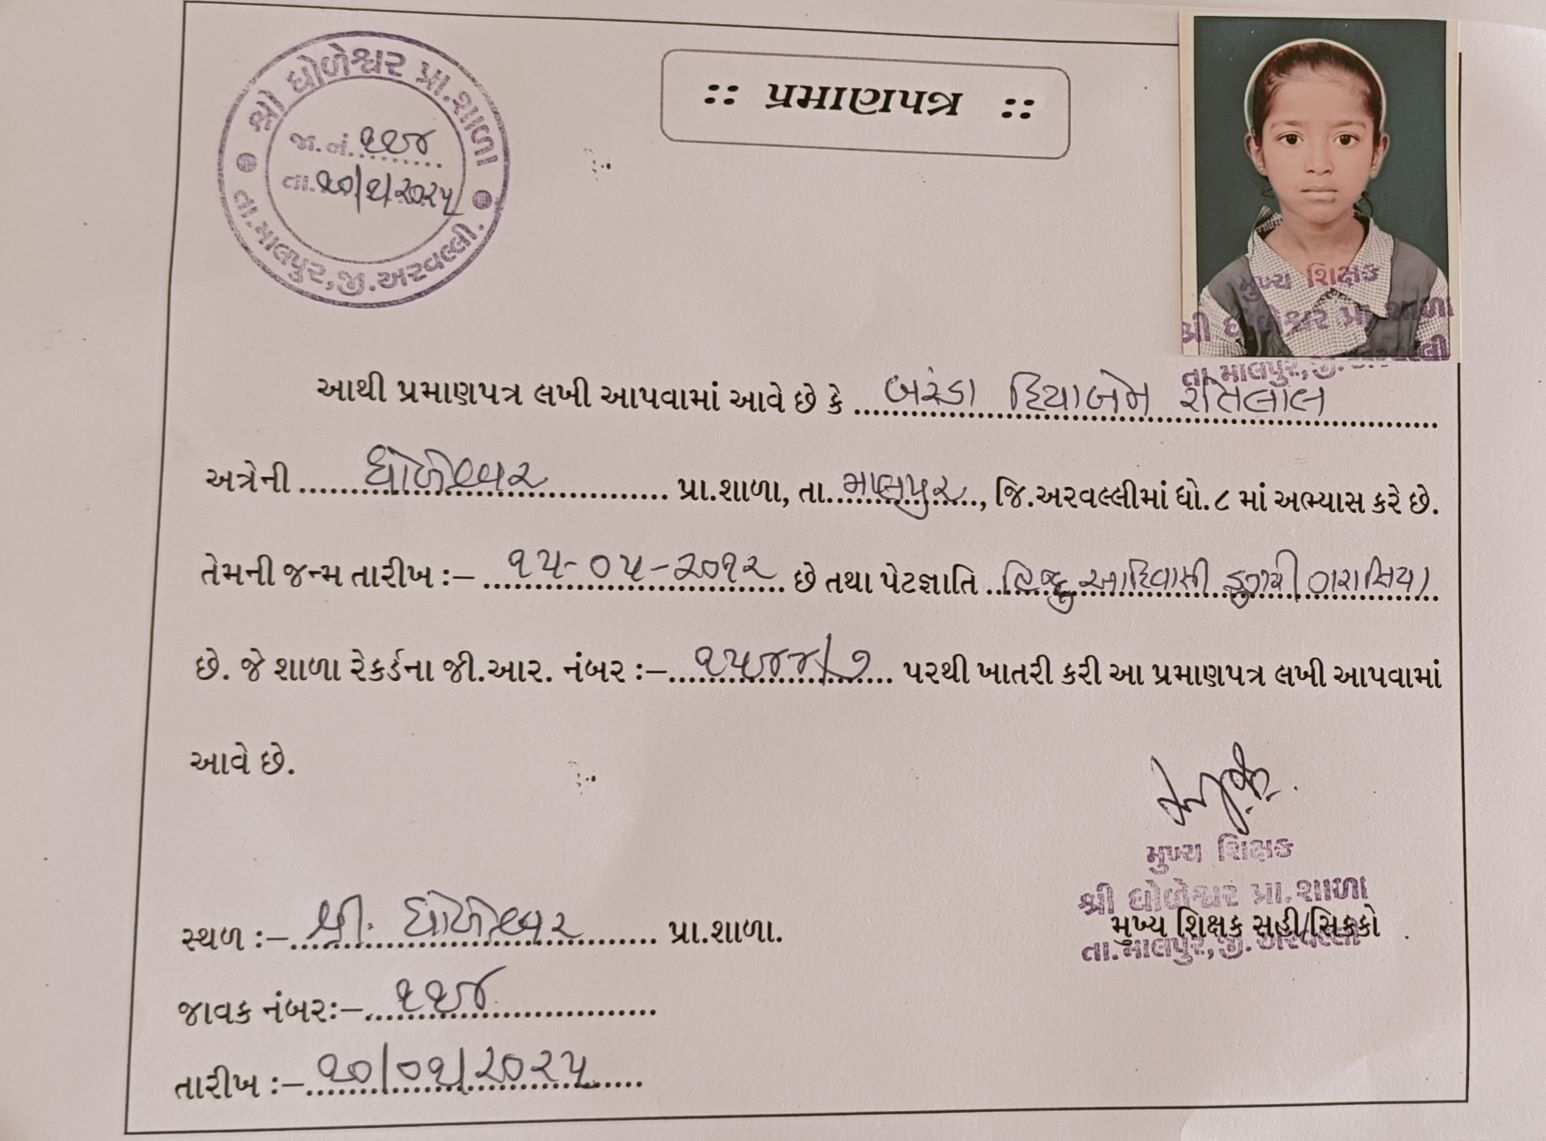 શ્રી ધોળેશ્વર પ્રા.શાળા
જા.નં. ૧૧૪
તા. ૧૦/૧/૨૦૨૫
તા.માલપુર,જી.અરવલ્લી.
:: પ્રમાણપત્ર ::
મુખ્ય શિક્ષક
શ્રી ધોળેશ્વર પ્રા.શાળા
તા.માલપુર,જી.અરવલ્લી
આથી પ્રમાણપત્ર લખી આપવામાં આવે છે કે બરંડા દિયાબેન
અત્રેની ધોળેશ્વર પ્રા.શાળા, તા. માલપુર, જિ.અરવલ્લીમાં ધો.૮ માં અભ્યાસ કરે છે.
તેમની જન્મ તારીખ :– ૧૫-૦૫-૨૦૧૨ છે તથા પેટાજ્ઞાતિ હિન્દુ આદિવાસી ડુંગરી ગરાસિયા
છે. જે શાળા રેકર્ડના જી.આર. નંબર :– પરથી ખાતરી કરી આ પ્રમાણપત્ર લખી આપવામાં
આવે છે.
મુખ્ય શિક્ષક
શ્રી ધોળેશ્વર પ્રા.શાળા
મુખ્ય શિક્ષક સહી/સિક્કો
તા.માલપુર,જી.અરવલ્લી
સ્થળ :– શ્રી. ધોળેશ્વર પ્રા.શાળા.
જાવક નંબર:– ૧૧૪
તારીખ :– ૧૦/૦૧/૨૦૨૫